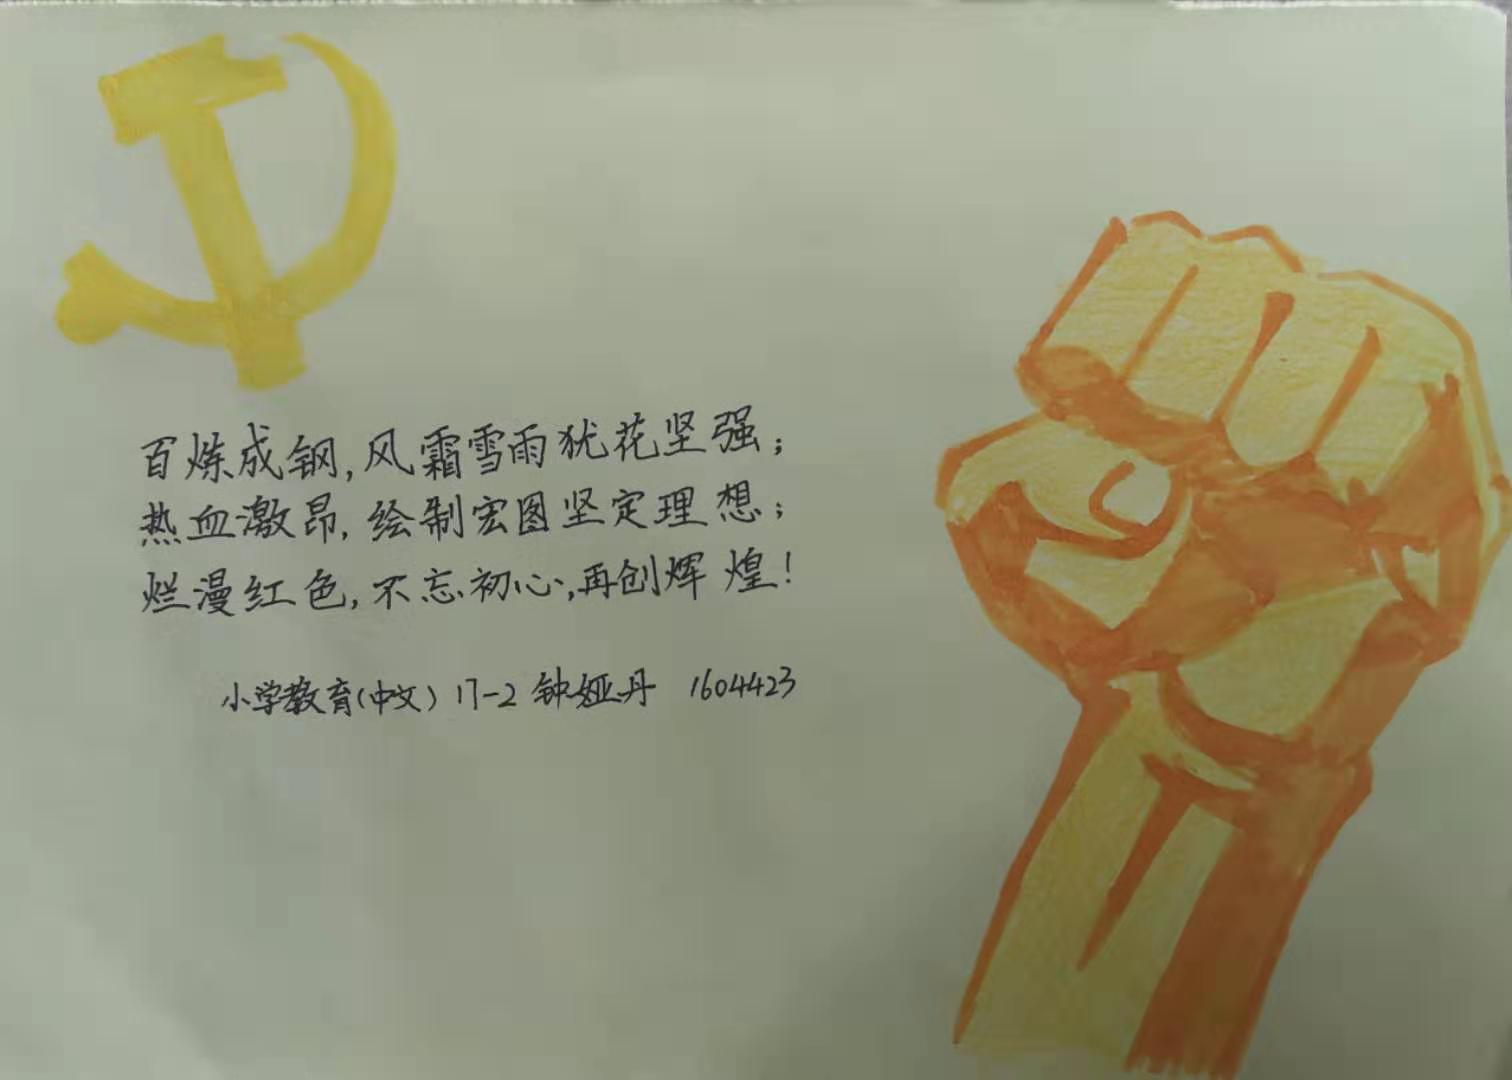 百炼成钢,风霜雪雨犹花坚强;
热血激昂,绘制宏图坚定理想;
烂漫红色,不忘初心,再创辉煌!
小学教育(中文) 17-2 钟娅丹 1604423